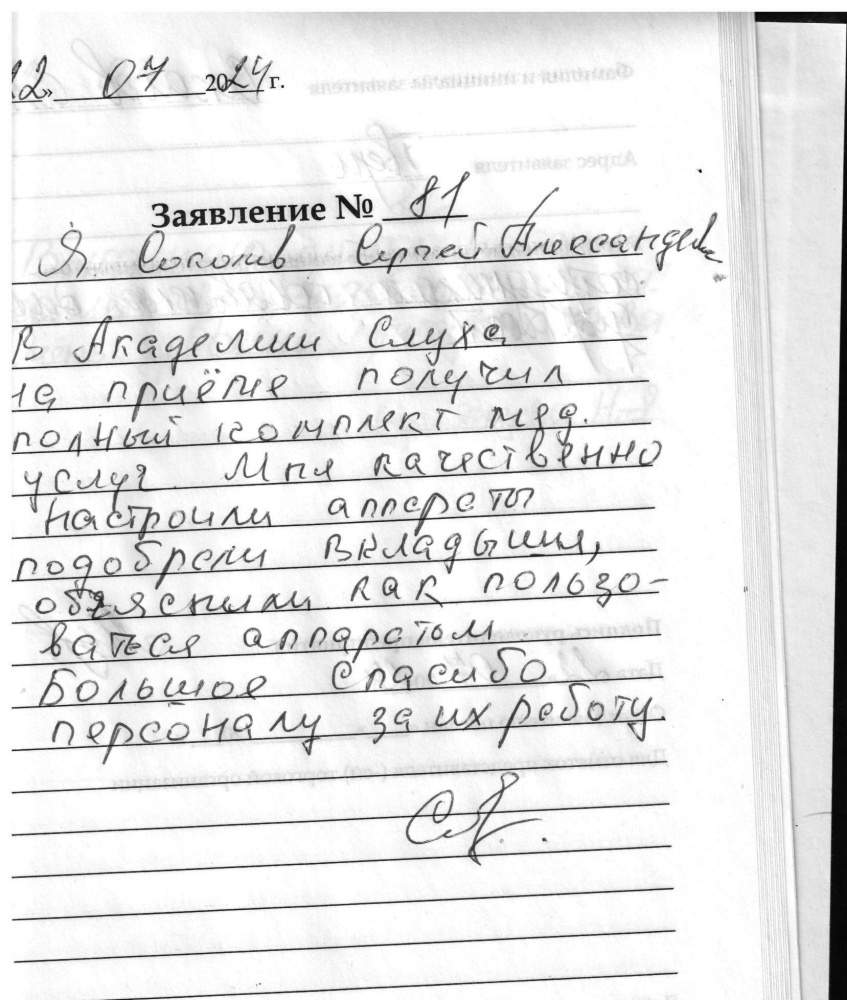 22» 07 2024 г.
Заявление № 81
Я. Соколов Сергей Александрович
В Академии Слуха
на приёме получил
полный комплект мед.
услуг. Мне качественно
настроили аппараты
подобрали вкладыши,
объяснили как пользо-
ваться аппаратом.
Большое спасибо
персоналу за их работу.